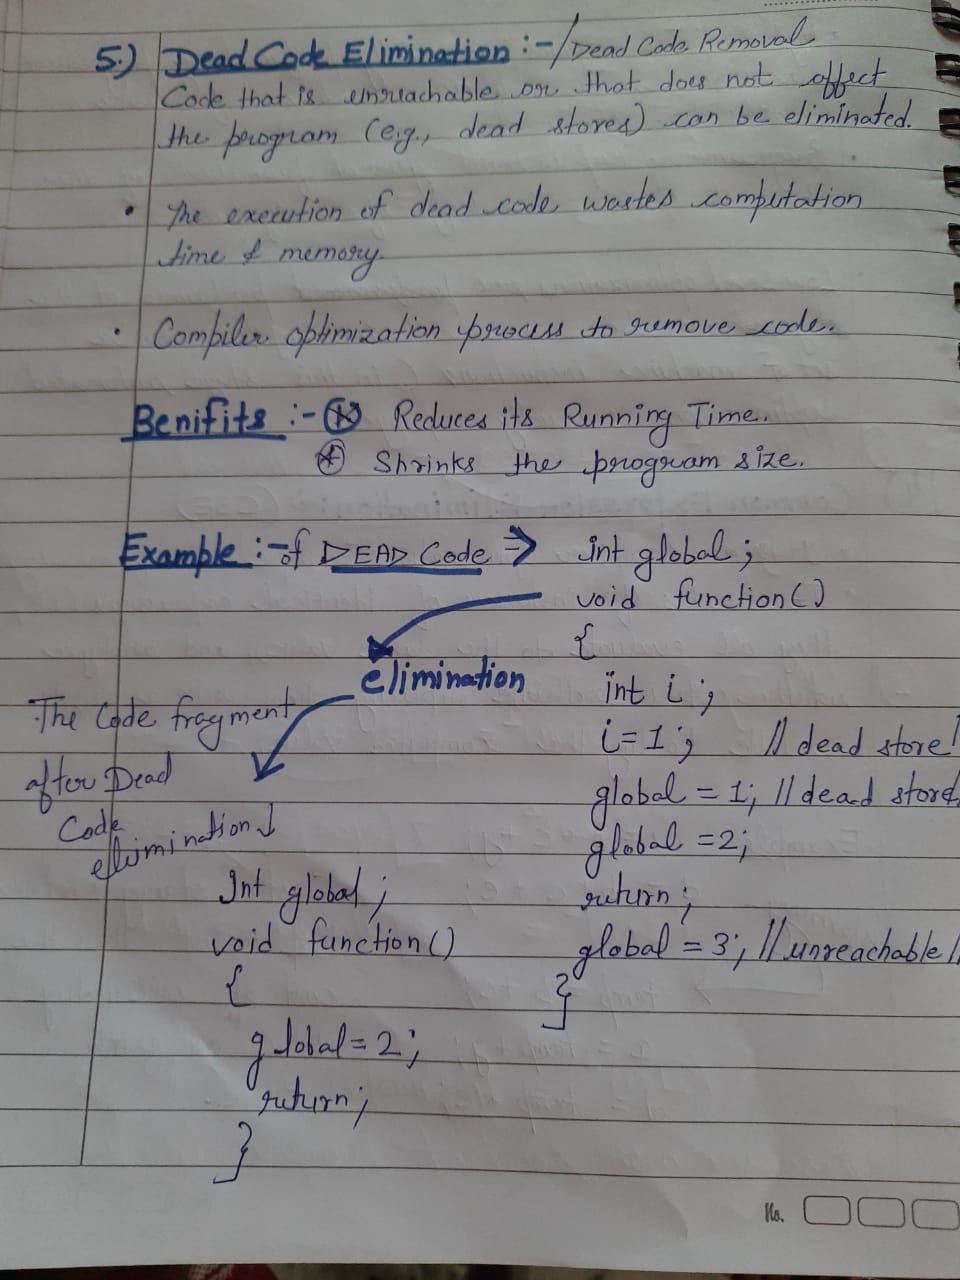 5.) Dead Code Elimination :-/Dead Code Removal
Code that is unreachable or that does not affect
the program (e.g., dead stores) can be eliminated.
• The execution of dead code wastes computation
time & memory.
• Compiler optimization process to remove code.
Benifits :- Reduces its Running Time.
Shrinks the program size.
Example :- of DEAD Code ⇒ int global ;
void function()
{
int i ;
i=1 ; // dead store
global = 1; // dead store
global =2;
return ;
global = 3; // unreachable //
}
elimination
The Code fragment
after Dead
Code
elimination ↓
Int global ;
void function()
{
global = 2 ;
return ;
}
No.